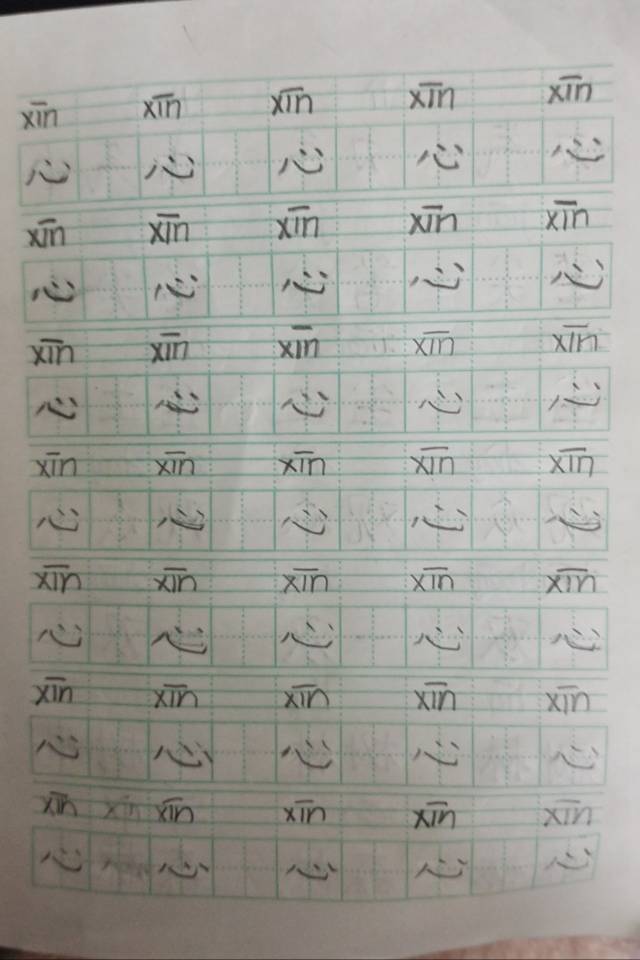 xīn xīn xīn xīn xīn
心 心 心 心 心
xīn xīn xīn xīn xīn
心 心 心 心 心
xīn xīn xīn xīn xīn
心 心 心 心 心
xīn xīn xīn xīn xīn
心 心 心 心 心
xīn xīn xīn xīn xīn
心 心 心 心 心
xīn xīn xīn xīn xīn
心 心 心 心 心
xīn xīn xīn xīn xīn xīn
心 心 心 心 心